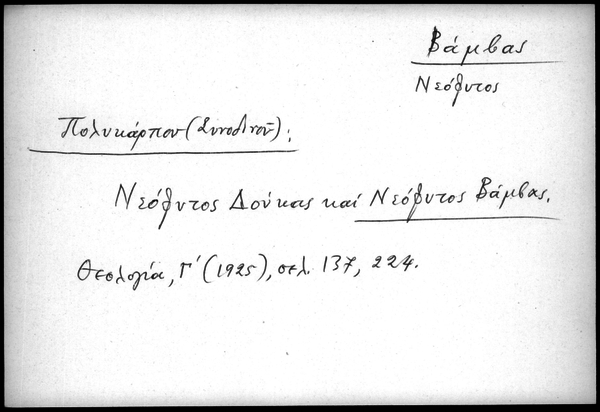 Βάμβας
Νεόφυτος
Πολυκάρπου (Συνοδινοῦ):
Νεόφυτος Δούκας καί Νεόφυτος Βάμβας.
Θεολογία, Γ' (1925), σελ. 137, 224.